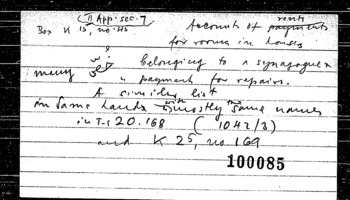 II App. sec. 7
Box K 15, no. 45
Accounts of rents payments
for rooms in houses
belonging to a synagogue
many " payments for repairs.
A similar list
in same hand with mostly same names
in T-S 20.168 (1042/3)
and K 25, no 169
100085